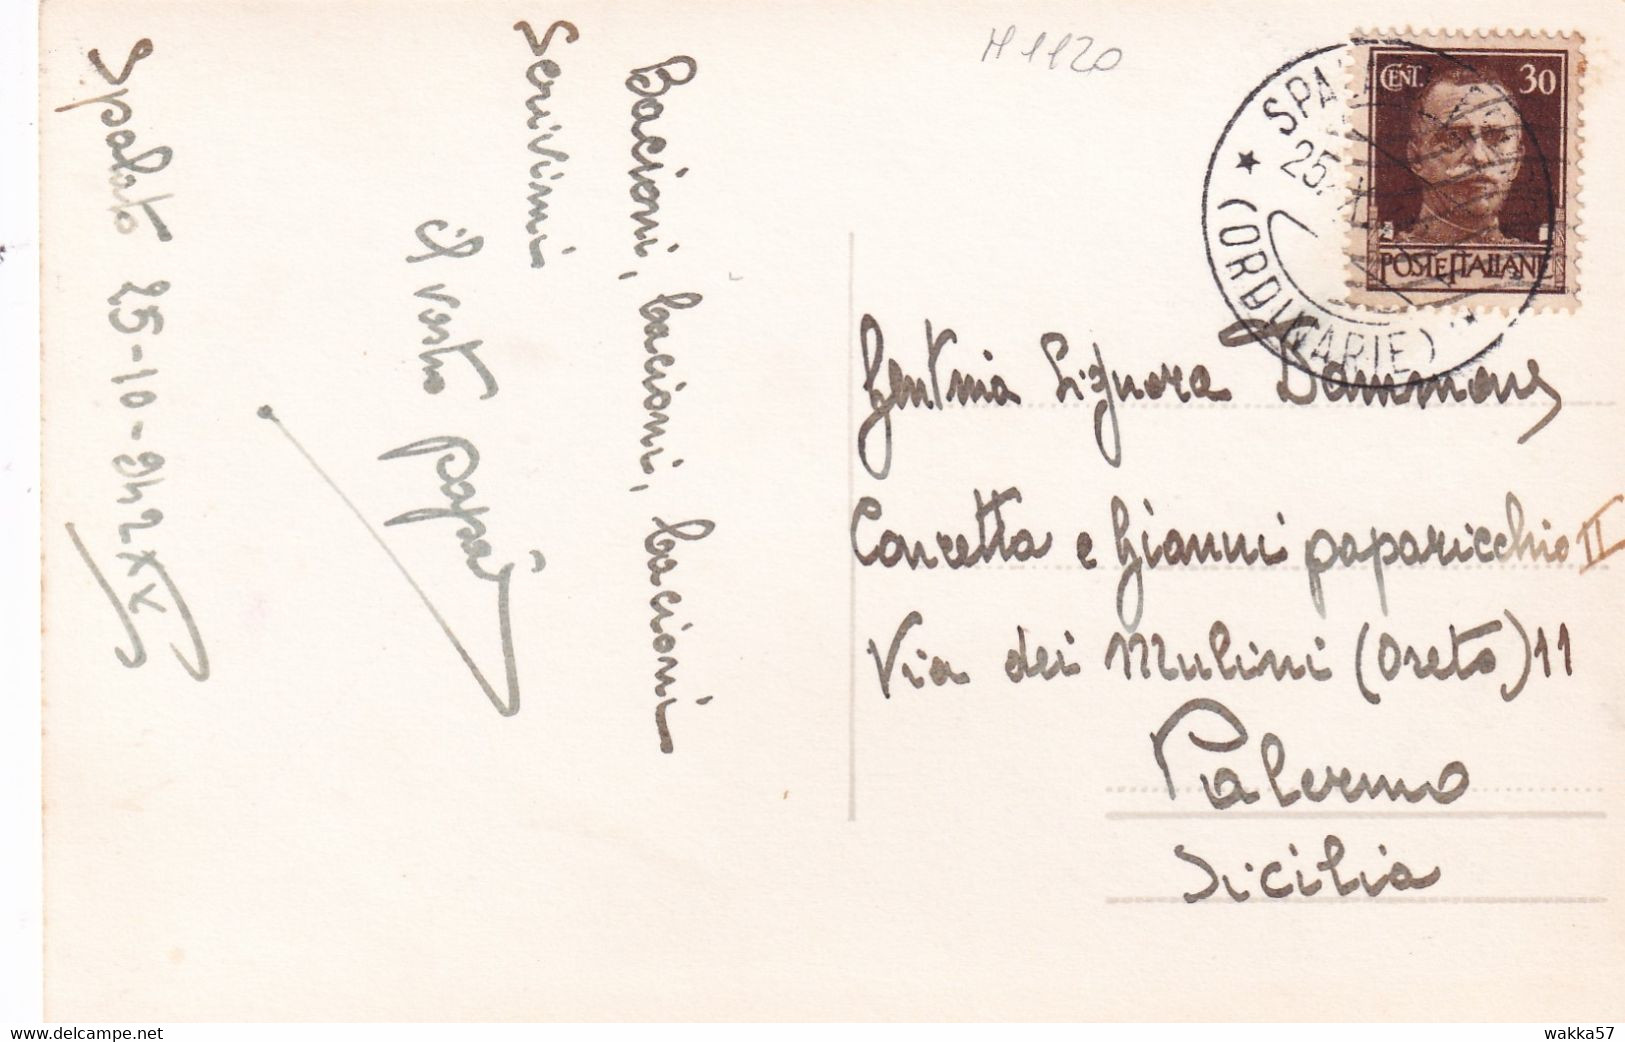 Spalato 25-10-942 XX
Scrivimi
Bacioni, bacioni, bacioni
il vostro papà
M1120
CENT. 30
POSTE ITALIANE
SPA
25
(ORDINARIE)
Signora
e Gianni paparicchio II
Via dei Mulini (Oreto) 11
Palermo
Sicilia
delcampe.net
wakka57